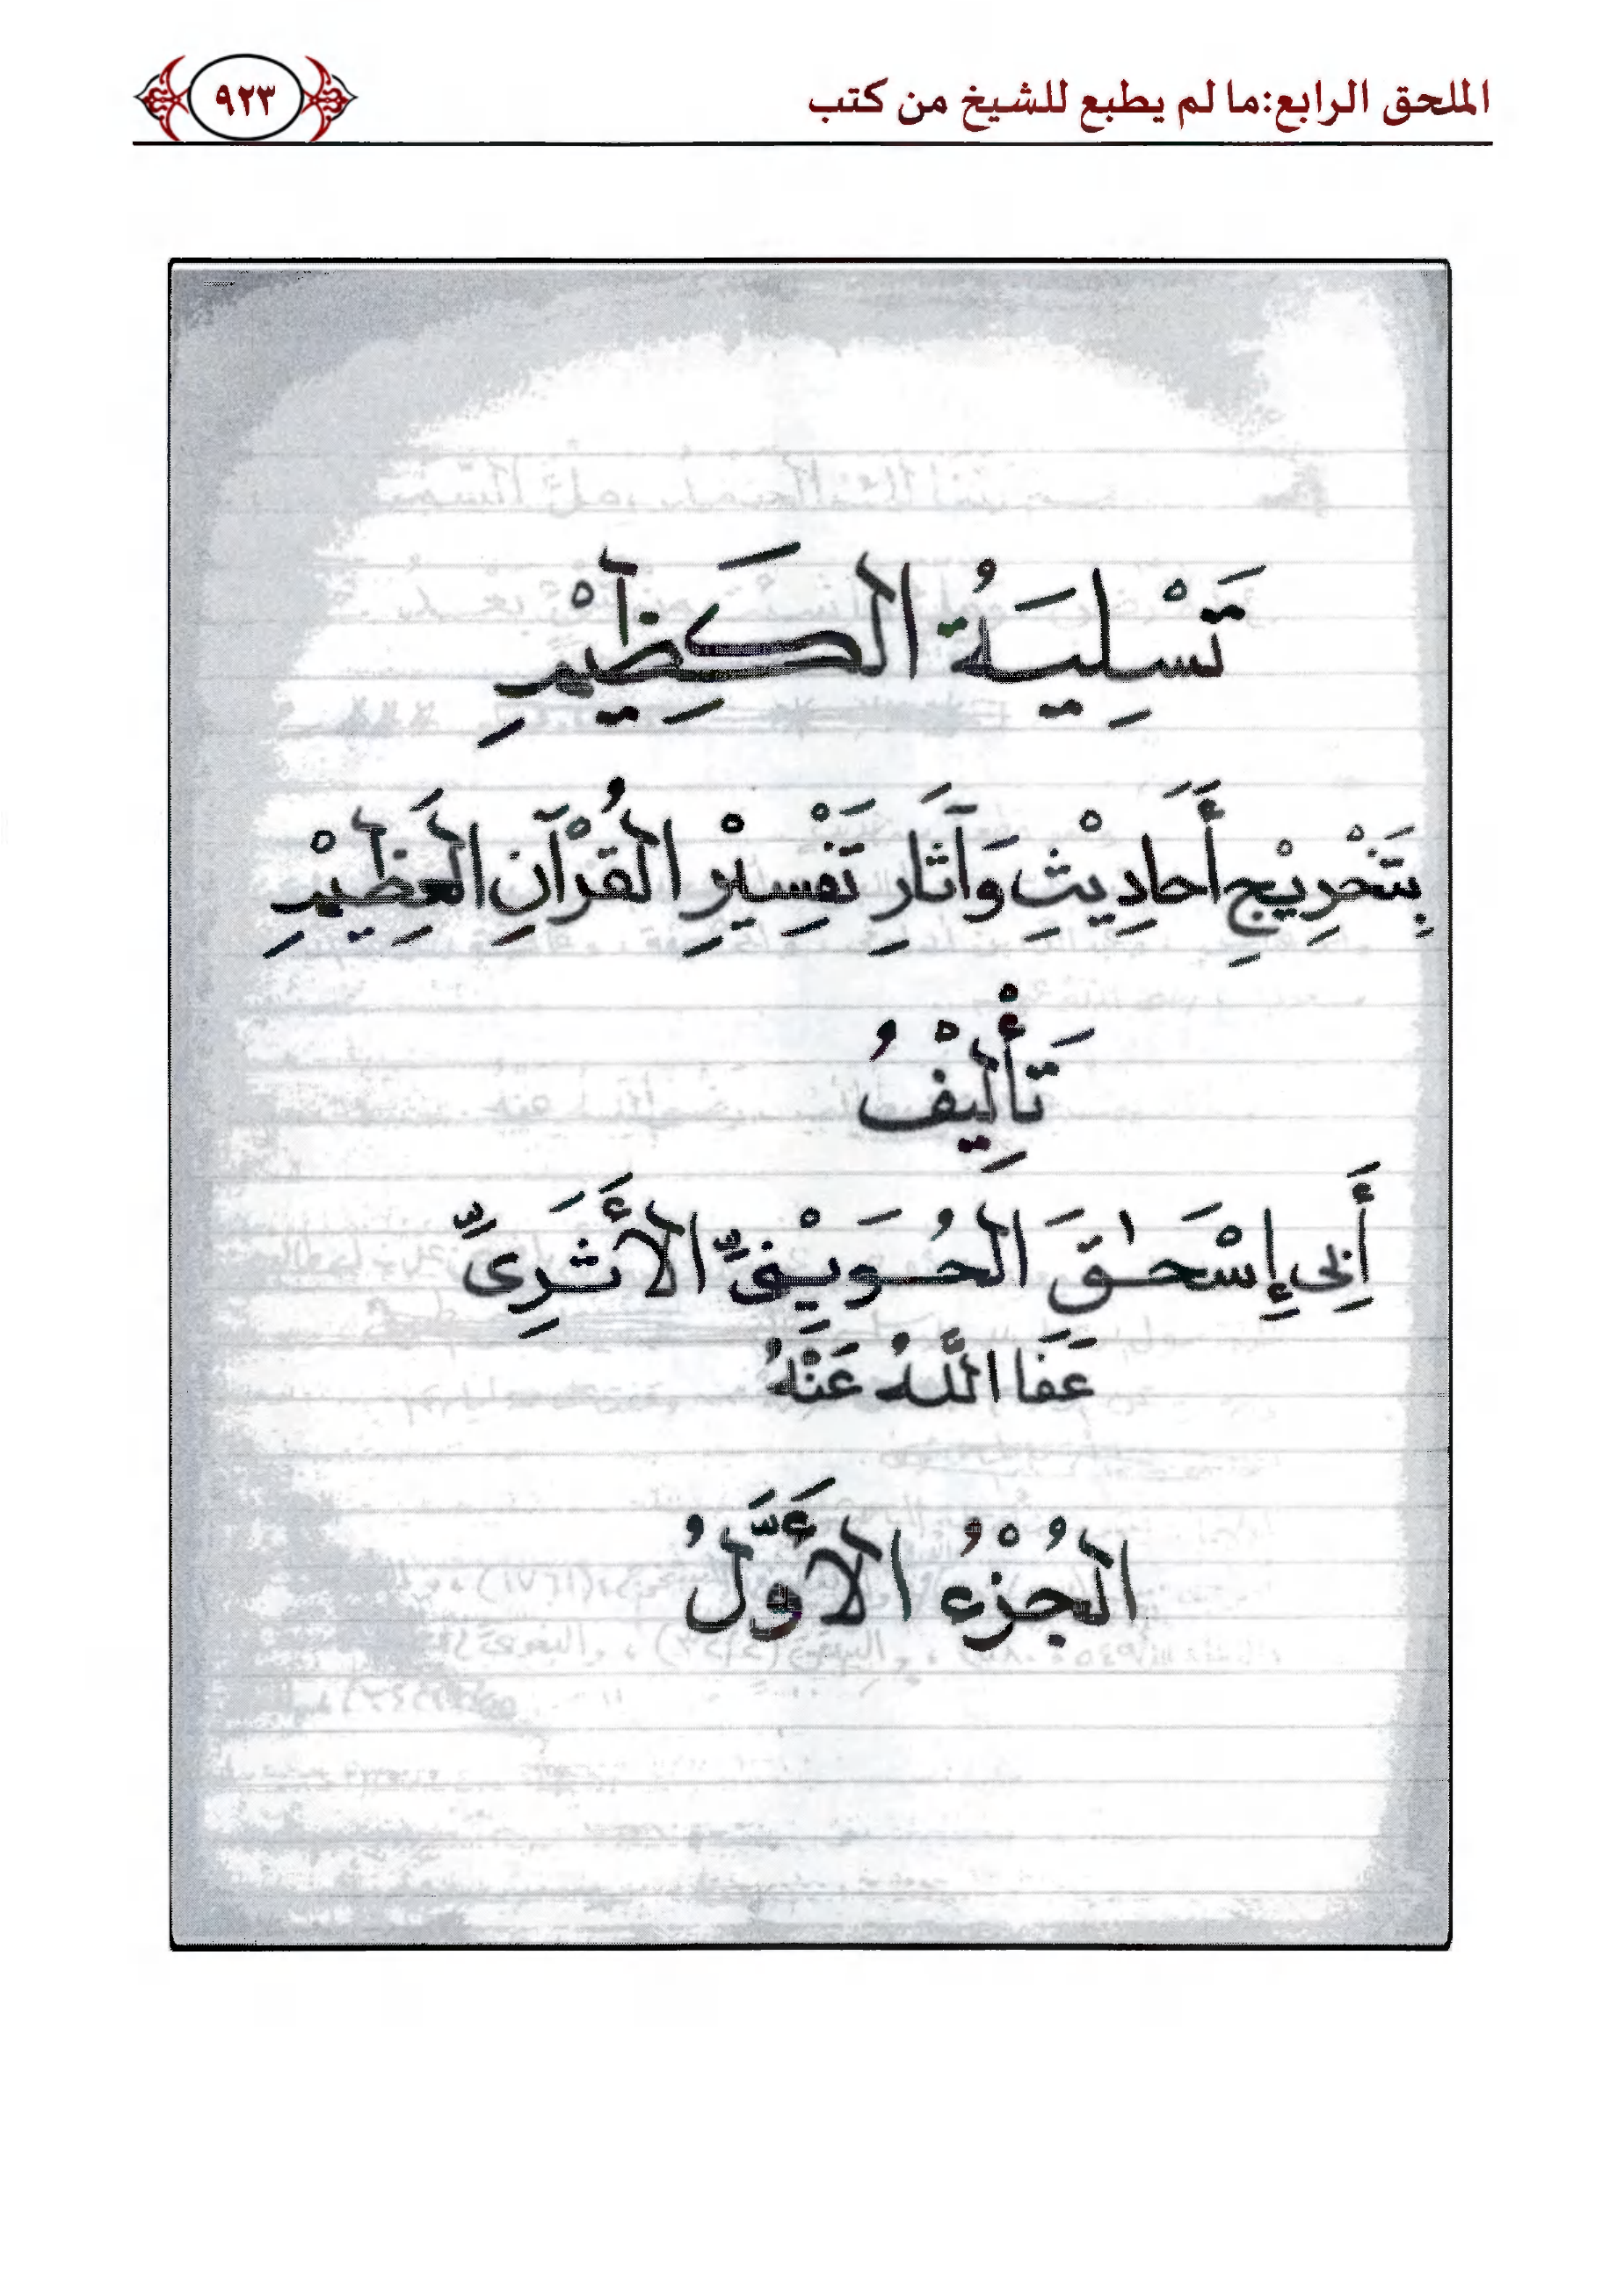 الملحق الرابع:ما لم يطبع للشيخ من كتب
٩٢٣
تَسْلِيَةُ الكَظِيْمِ
بِتَخْرِيْجِ أَحَادِيْثِ وَآثَارِ تَفْسِيْرِ الْقُرْآنِ الْعَظِيْمِ
تَأْلِيْفُ
أَبِى إِسْحٰقَ الْحُوَيْنِىِّ الأَثَرِىِّ
عَفَا اللَّهُ عَنْهُ
الْجُزْءُ الأَوَّلُ